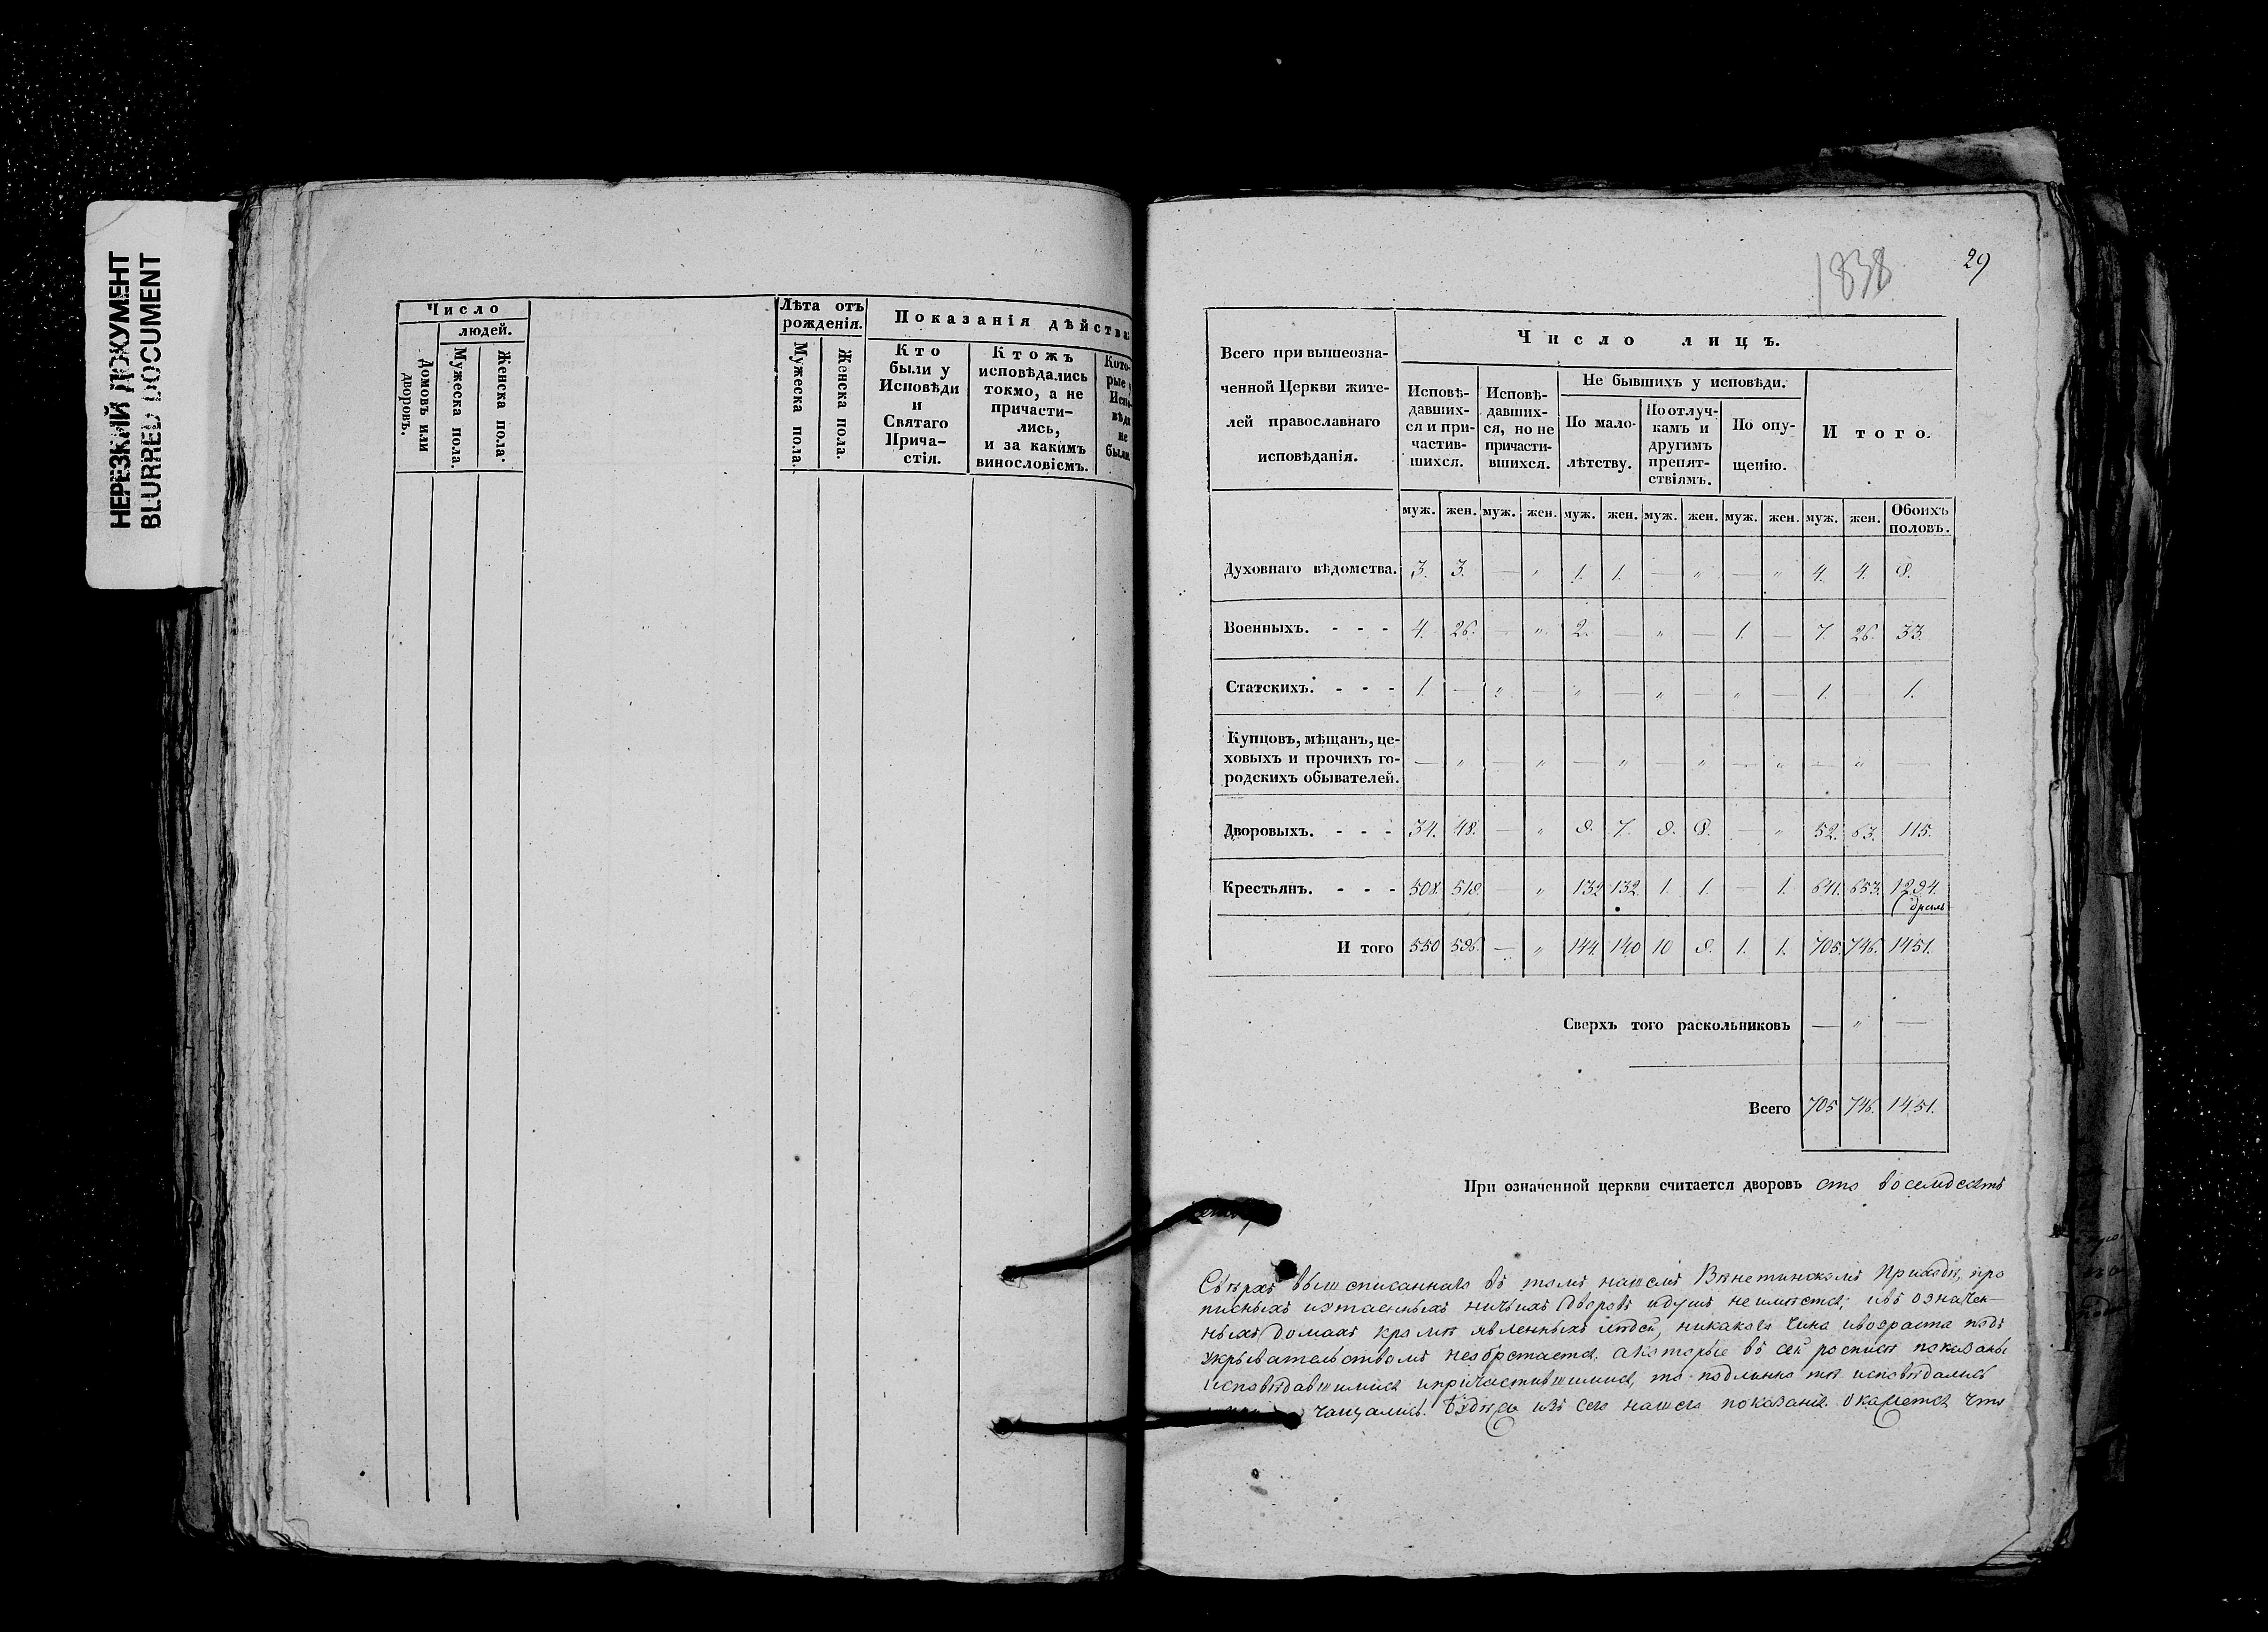 НЕРЕЗКИЙ ДОКУМЕНТ
BLURRED DOCUMENT
Число
людей.
Домовъ или дворовъ.
Мужеска пола.
Женска пола.
Лѣта отъ
рожденія.
Мужеска пола.
Женска пола.
Показанія дѣйства
Кто
были у
Исповѣди
и
Святаго
Прича-
стія.
Ктожъ
исповѣдались
токмо, а не
причасти-
лись,
и за какимъ
винословіемъ.
Кото-
рые у
Испо-
вѣди
не
были.
1838
29
Всего при вышеозна-
ченной Церкви жите-
лей православнаго
исповѣданія.
Число лицъ.
Исповѣ-
давших-
ся и при-
частив-
шихся.
Исповѣ-
давших-
ся, но не
причасти-
вшихся.
Не бывшихъ у исповѣди.
По мало-
лѣтству.
По отлуч-
камъ и
другимъ
препят-
ствіямъ.
По опу-
щенію.
Итого.
муж. жен. муж. жен. муж. жен. муж. жен. муж. жен. муж. жен. Обоихъ
половъ.
Духовнаго вѣдомства. 3. 3. — „ 1. 1. — „ — „ 4. 4. 8.
Военныхъ. - - - 4. 26. — „ 2. — „ — 1. — 7. 26. 33.
Статскихъ. - - - 1. — „ — „ — „ — „ — 1. — 1.
Купцовъ, мѣщанъ, це-
ховыхъ и прочихъ го-
родскихъ обывателей. — „ — „ — „ — „ — „ — „ —
Дворовыхъ. - - - 34. 48. — „ 9. 7. 9. 8. — „ 52. 63. 115.
Крестьянъ. - - - 508. 519. — „ 132 132. 1. 1. — 1. 641. 653. 1294.
И того 550 596. — „ 144. 140 10 9. 1. 1. 705. 746. 1451.
Сверхъ того раскольниковъ — „ —
Всего 705 746. 1451.
При означенной церкви считается дворовъ сто восемдесятъ
Свѣрхъ вышсписаннаго въ томъ нашемъ приходѣ, про
писныхъ иутаенныхъ ничьихъ дворовъ идушъ неимѣется; ивъ означен-
ныхъ домахъ кромѣ явленныхъ людей, никакова чина ивозраста подъ
укрывательствомъ необрѣтается. акоторые въ сей росписи показаны
исповѣдавшимися ипричастившимися, то подлинно тѣ исповѣдались
чащались. изъ сего нашего показанія окажется что